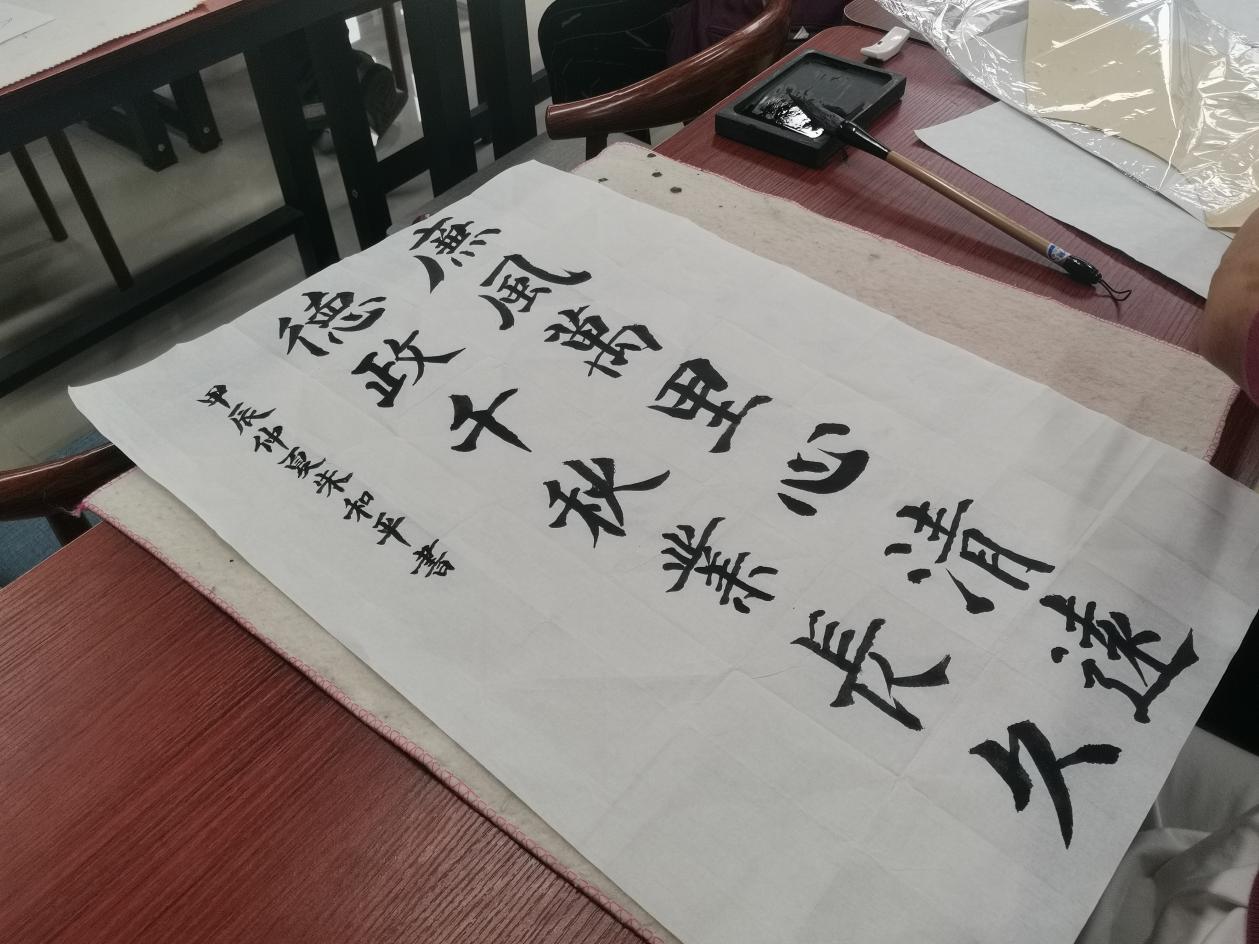 廉風萬里心清遠
德政千秋業長久
甲辰仲夏朱和平書